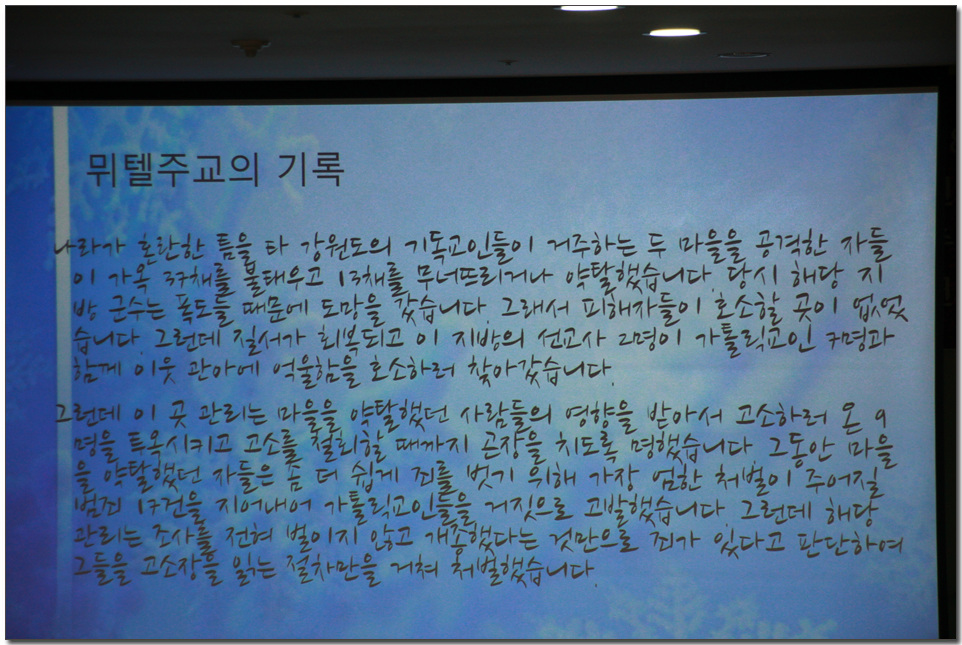 뮈텔주교의 기록
나라가 혼란한 틈을 타 강원도의 기독교인들이 거주하는 두 마을을 공격한 자들
이 가옥 37채를 불태우고 13채를 무너뜨리거나 약탈했습니다. 당시 해당 지
방 군수는 폭도들 때문에 도망을 갔습니다. 그래서 피해자들이 호소할 곳이 없었
습니다. 그런데 질서가 회복되고 이 지방의 선교사 2명이 가톨릭교인 7명과
함께 이웃 관아에 억울함을 호소하러 찾아갔습니다.
그런데 이 곳 관리는 마을을 약탈했던 사람들의 영향을 받아서 고소하러 온 9
명을 투옥시키고 고소를 철회할 때까지 곤장을 치도록 명했습니다. 그동안 마을
을 약탈했던 자들은 좀 더 쉽게 죄를 벗기 위해 가장 엄한 처벌이 주어질
범죄 17건을 지어내어 가톨릭교인들을 거짓으로 고발했습니다. 그런데 해당
관리는 조사를 전혀 벌이지 않고 개종했다는 것만으로 죄가 있다고 판단하여
그들을 고소장을 읽는 절차만을 거쳐 처벌했습니다.